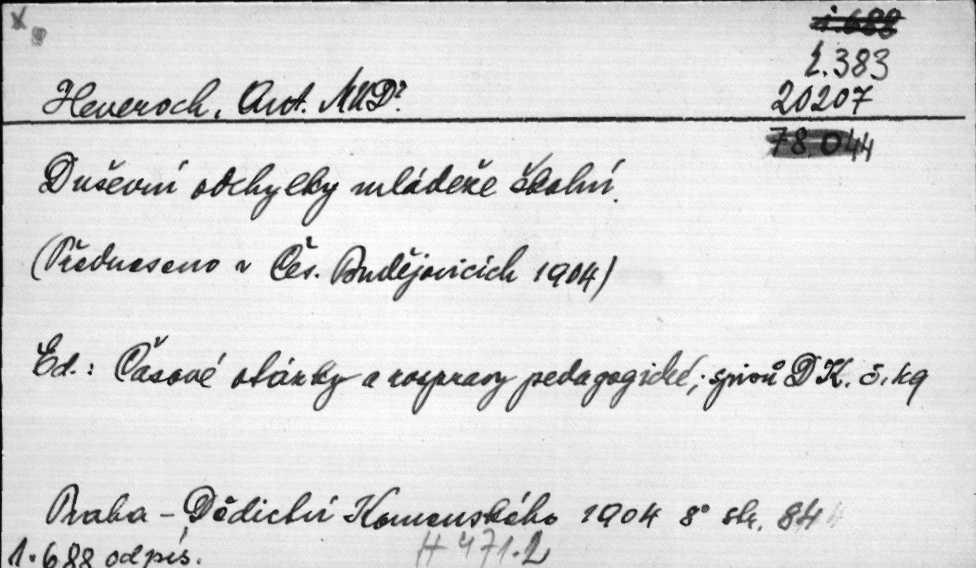 1.688
1.383
Heveroch, Ant. MUDr
20207
78.044
Duševní odchylky mládeže školní.
(Předneseno v Čes. Budějovicích 1904)
Ed.: Časové otázky a rozpravy pedagogické; spisů DK. č.
Praha - Dědictví Komenského 1904 8° str. 84
1.688 odpis.
H 471.2